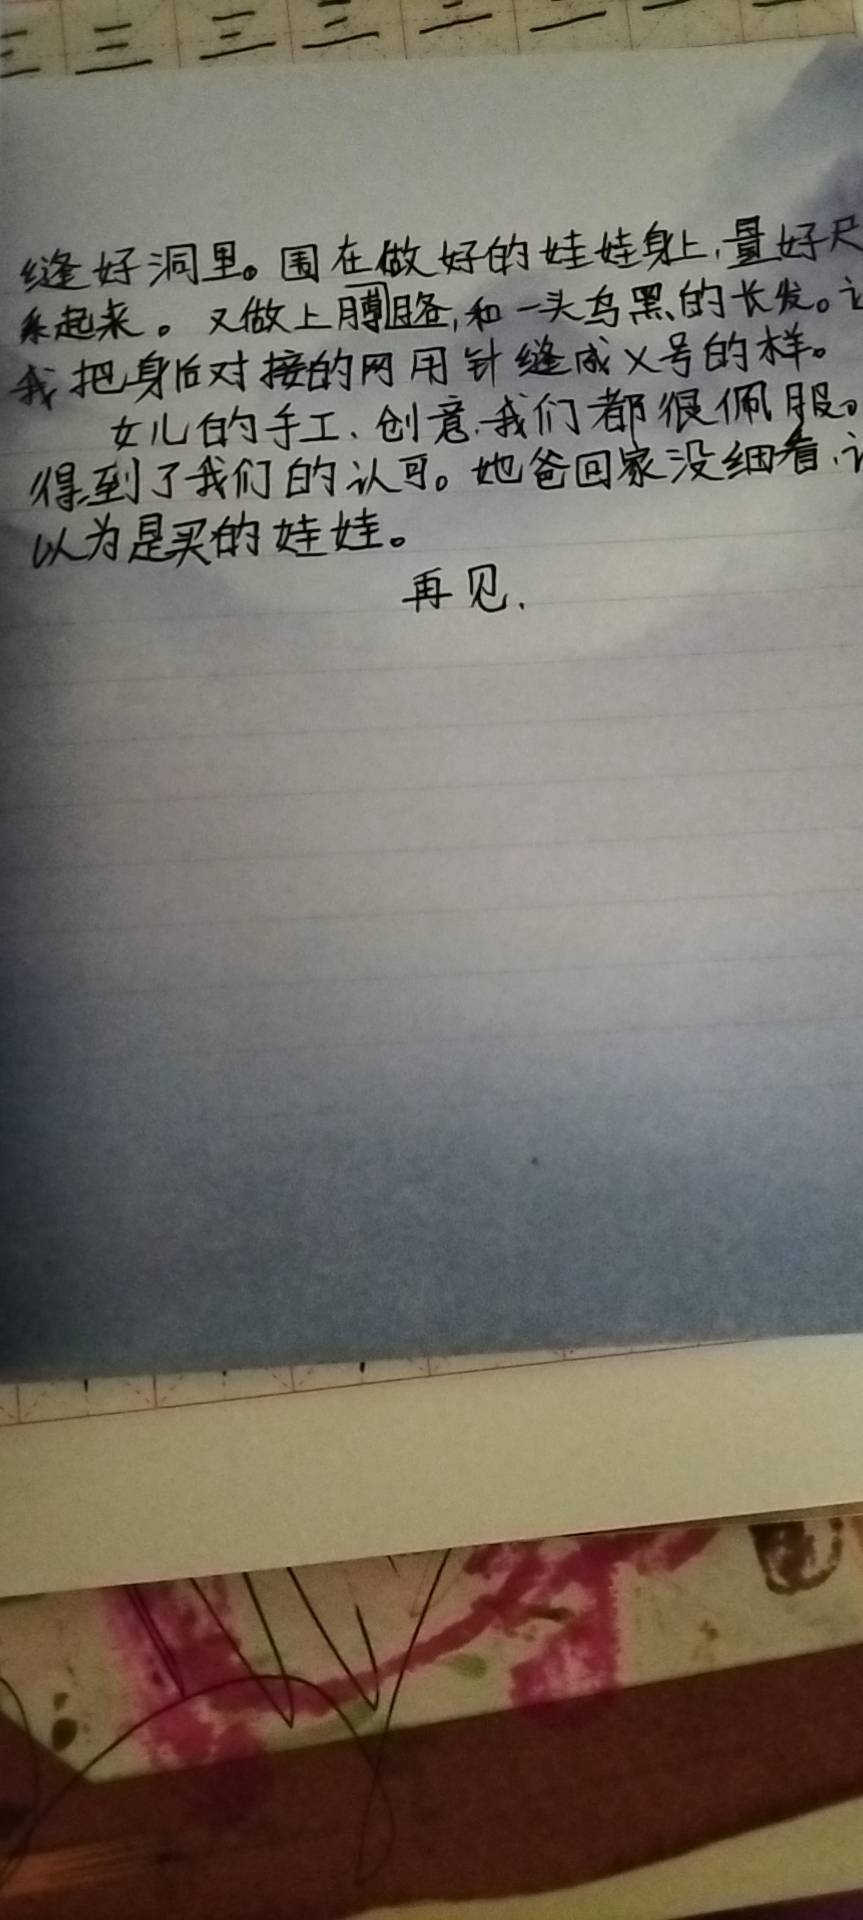 三 三 三 三 三 三 三
缝好洞里。围在做好的娃娃身上,量好尺
系起来。又做上膊胳,和一头乌黑的长发。让
我把身后对接的网用针缝成X号的样。
女儿的手工、创意,我们都很佩服。
得到了我们的认可。她爸回家没细看,
以为是买的娃娃。
再见.